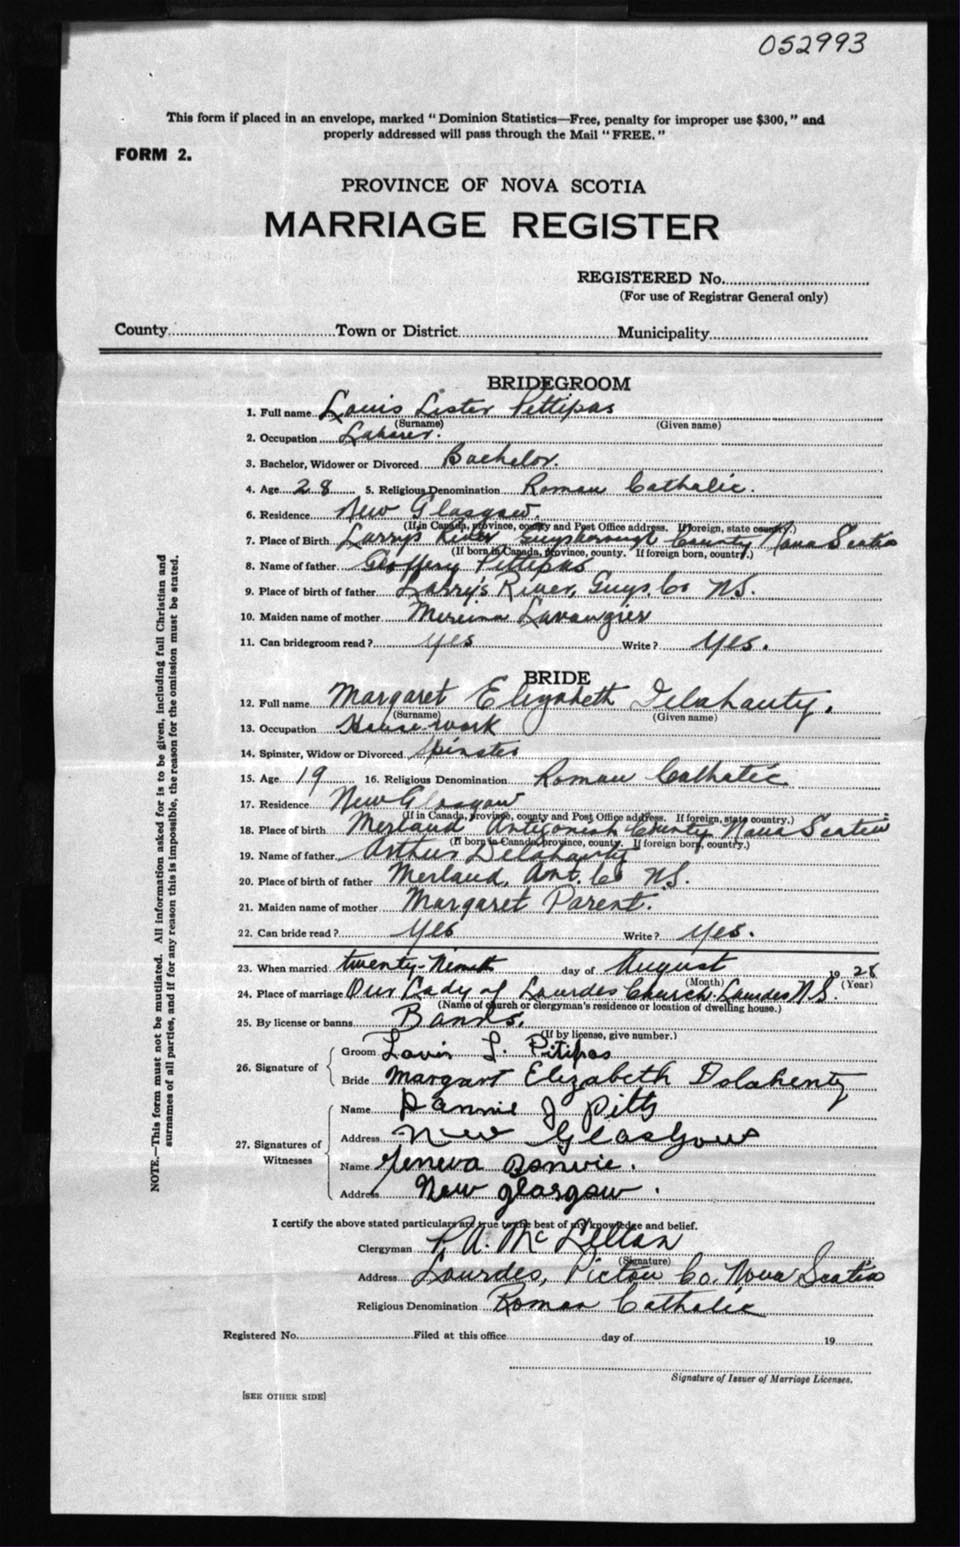 052993
This form if placed in an envelope, marked "Dominion Statistics—Free, penalty for improper use $300," and
properly addressed will pass through the Mail "FREE."
FORM 2.
PROVINCE OF NOVA SCOTIA
MARRIAGE REGISTER
REGISTERED No.
(For use of Registrar General only)
County Town or District Municipality
BRIDEGROOM
1. Full name Louis Lester Pettipas
(Surname) (Given name)
2. Occupation Laborer.
3. Bachelor, Widower or Divorced Bachelor.
4. Age 28 5. Religious Denomination Roman Catholic.
6. Residence New Glasgow.
(If in Canada, province, county and Post Office address. If foreign, state country.)
7. Place of Birth Larrys River Guysborough County Nova Scotia
(If born in Canada, province, county. If foreign born, country.)
8. Name of father Pettipas
9. Place of birth of father Larry's River, Guys. Co NS.
10. Maiden name of mother
11. Can bridegroom read? yes Write? yes.
BRIDE
12. Full name Margaret Elizabeth Delahanty.
(Surname) (Given name)
13. Occupation Housework
14. Spinster, Widow or Divorced Spinster
15. Age 19 16. Religious Denomination Roman Catholic
17. Residence New Glasgow
(If in Canada, province, county and Post Office address. If foreign, state country.)
18. Place of birth Merland Antigonish County Nova Scotia
(If born in Canada, province, county. If foreign born, country.)
19. Name of father Arthur Delahanty
20. Place of birth of father Merland, Ant. Co N.S.
21. Maiden name of mother Margaret Parent.
22. Can bride read? Yes Write? yes.
23. When married twenty-Nineth day of August 1928
(Month) (Year)
24. Place of marriage Our Lady of Lourdes Church. Lourdes N.S.
(Name of church or clergyman's residence or location of dwelling house.)
25. By license or banns Banns.
(If by license, give number.)
26. Signature of
Groom Louis L. Pitipas
Bride Margart Elizabeth Dolahenty
27. Signatures of Witnesses
Name Dannie J Pitts
Address New Glasgow
Name Geneva
Address New glasgow.
I certify the above stated particulars are true to the best of my knowledge and belief.
Clergyman P. A. McLellan
(Signature)
Address Lourdes, Pictou Co. Nova Scotia
Religious Denomination Roman Catholic
Registered No. Filed at this office day of 19
Signature of Issuer of Marriage Licenses.
[SEE OTHER SIDE]
NOTE.—This form must not be mutilated. All information asked for is to be given, including full Christian and
surnames of all parties, and if for any reason this is impossible, the reason for the omission must be stated.